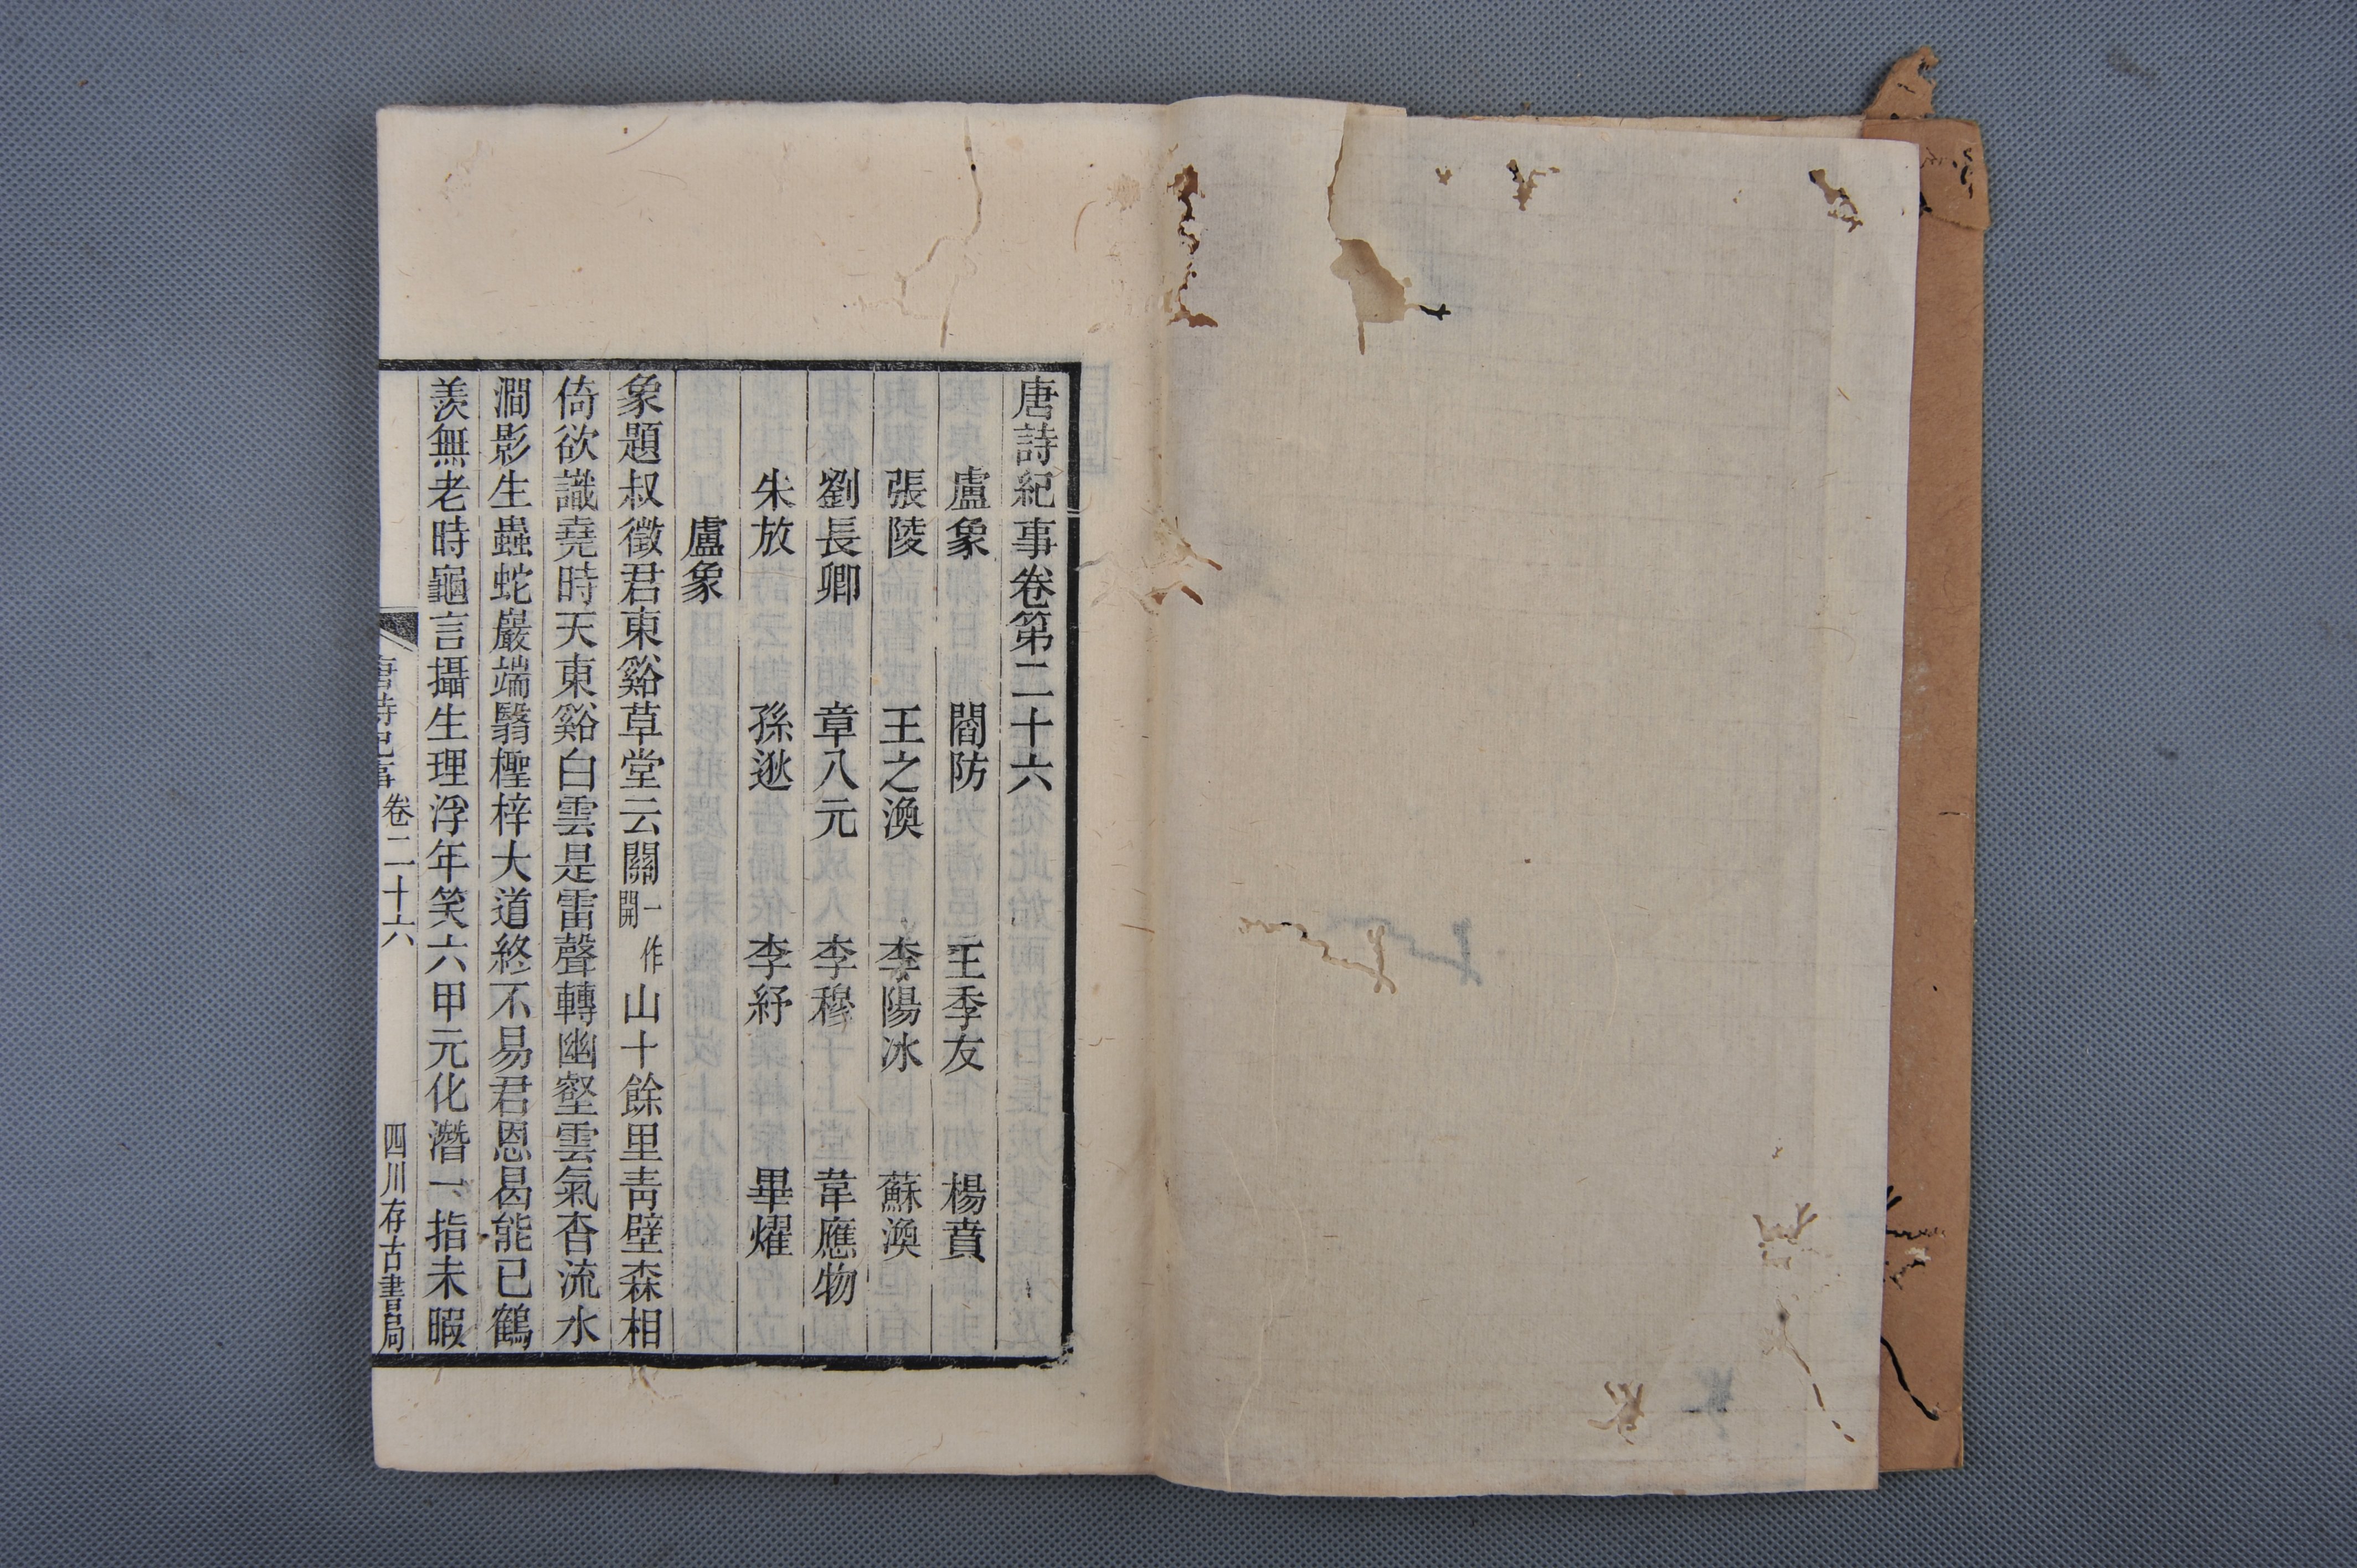 唐詩紀事卷第二十六
盧象　閻防　王季友　楊賁
張陵　王之渙　李陽冰　蘇渙
劉長卿　章八元　李穆　韋應物
朱放　孫逖　李紓　畢燿
盧象
象題叔徵君東谿草堂云關一作開山十餘里青壁森相
倚欲識堯時天東谿白雲是雷聲轉幽壑雲氣杳流水
澗影生蟲蛇巖端翳檉梓大道終不易君恩曷能已鶴
羨無老時龜言攝生理浮年笑六甲元化潛一指未暇
唐詩紀事 卷二十六 四川存古書局